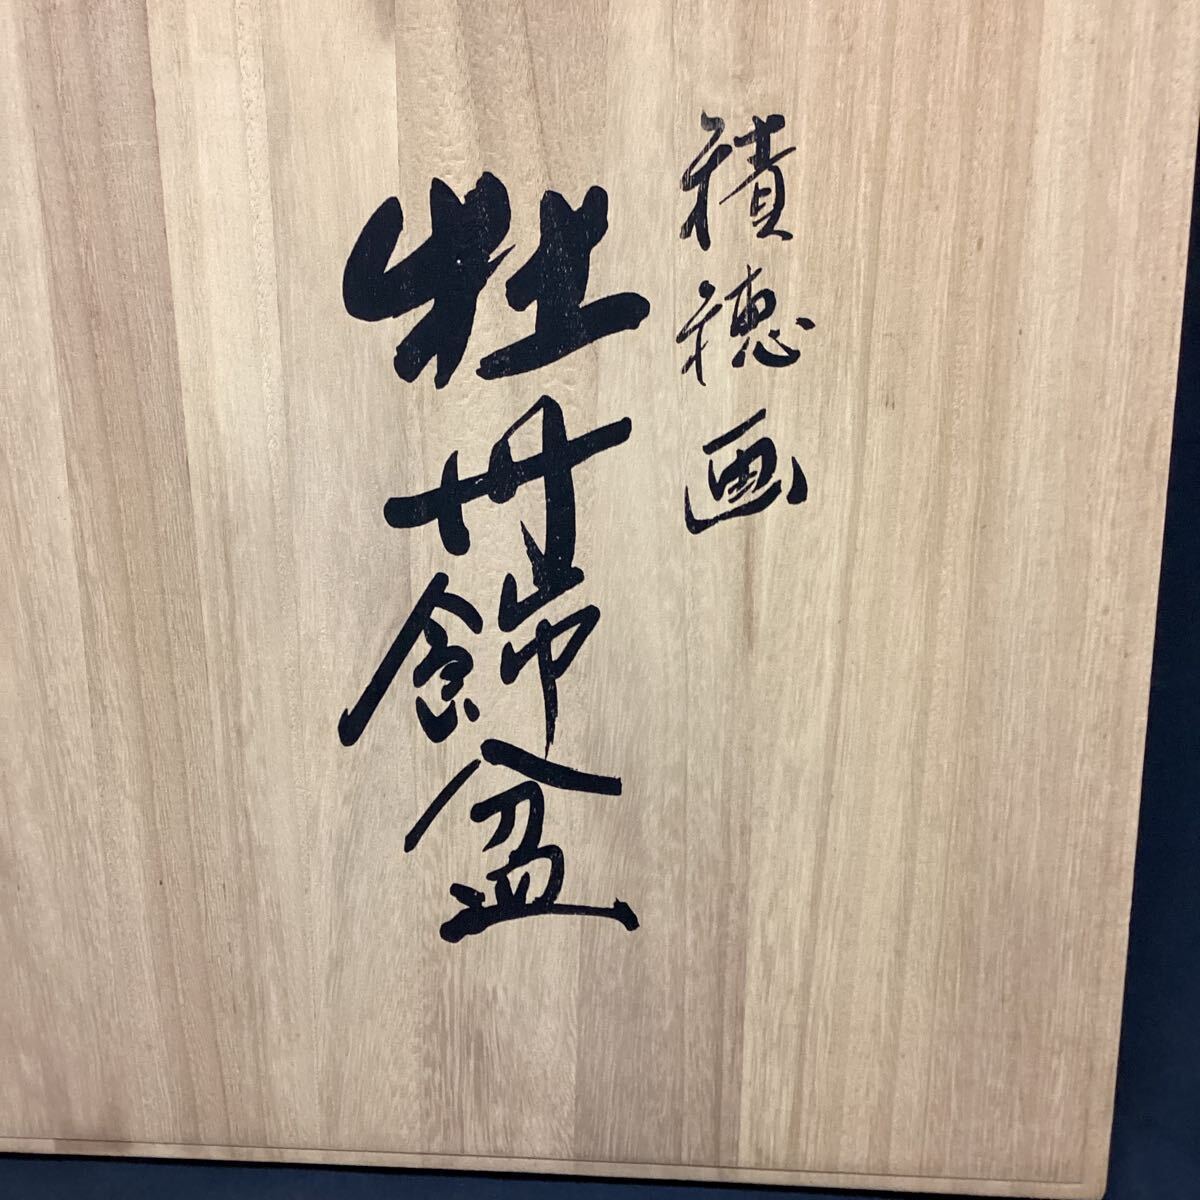 積穂画
牡丹飾盆